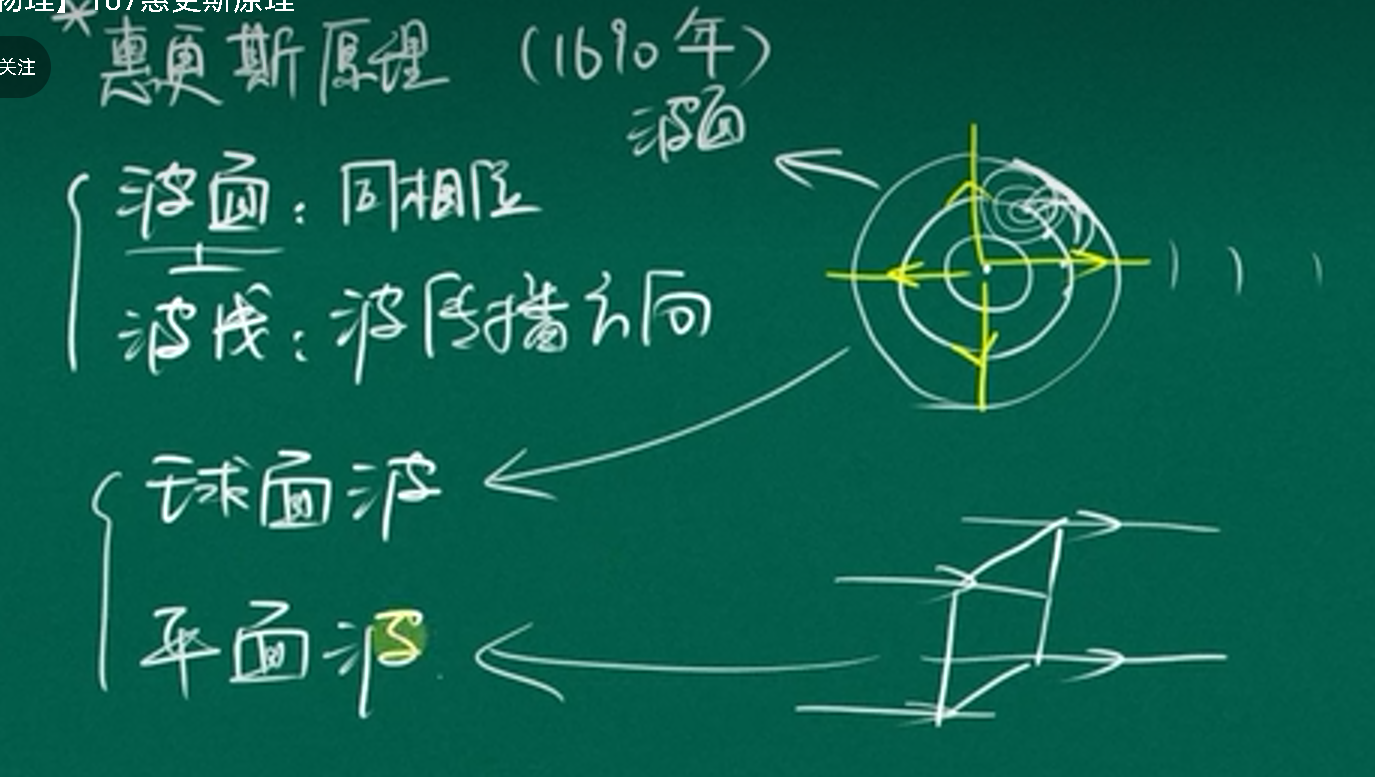 物理】107惠更斯原理
关注
*惠更斯原理（1690年）
波面
波面：同相位
波线：波传播方向
球面波
平面波